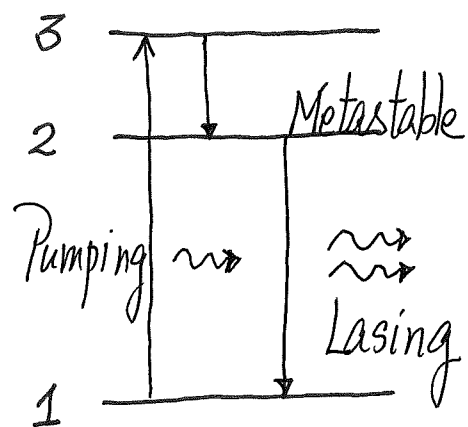 3
2
Metastable
Pumping
Lasing
1